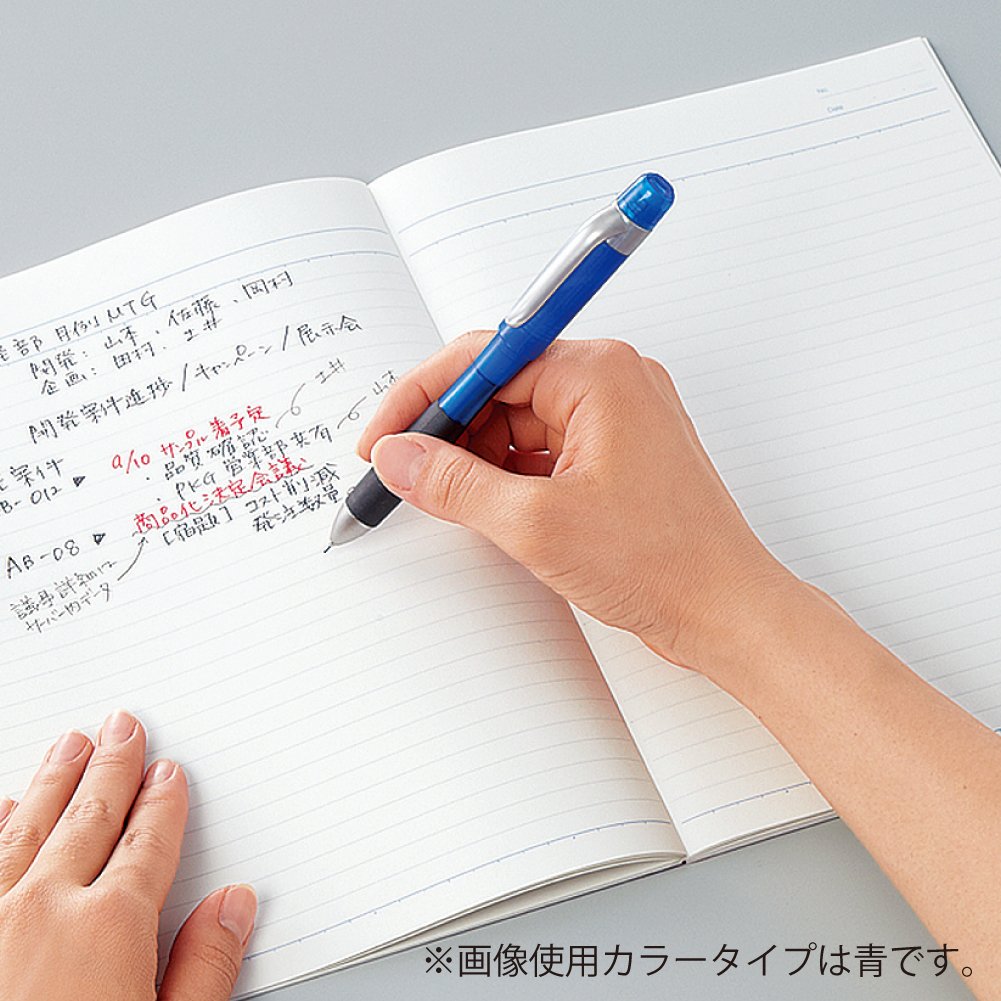 No.
Date
部 月例MTG
開発: 山本、佐藤、田村
企画: 田村、土井
開発案件進捗/キャンペーン/展示会
土井
山本
案件
9/10 サンプル着予定
B-012 ▶ ・品質確認
・PKG 営業部共有
商品化決定会議
AB-08 ▶ [宿題] コスト削減
発注数量
議事詳細は
サーバー内データ
※画像使用カラータイプは青です。